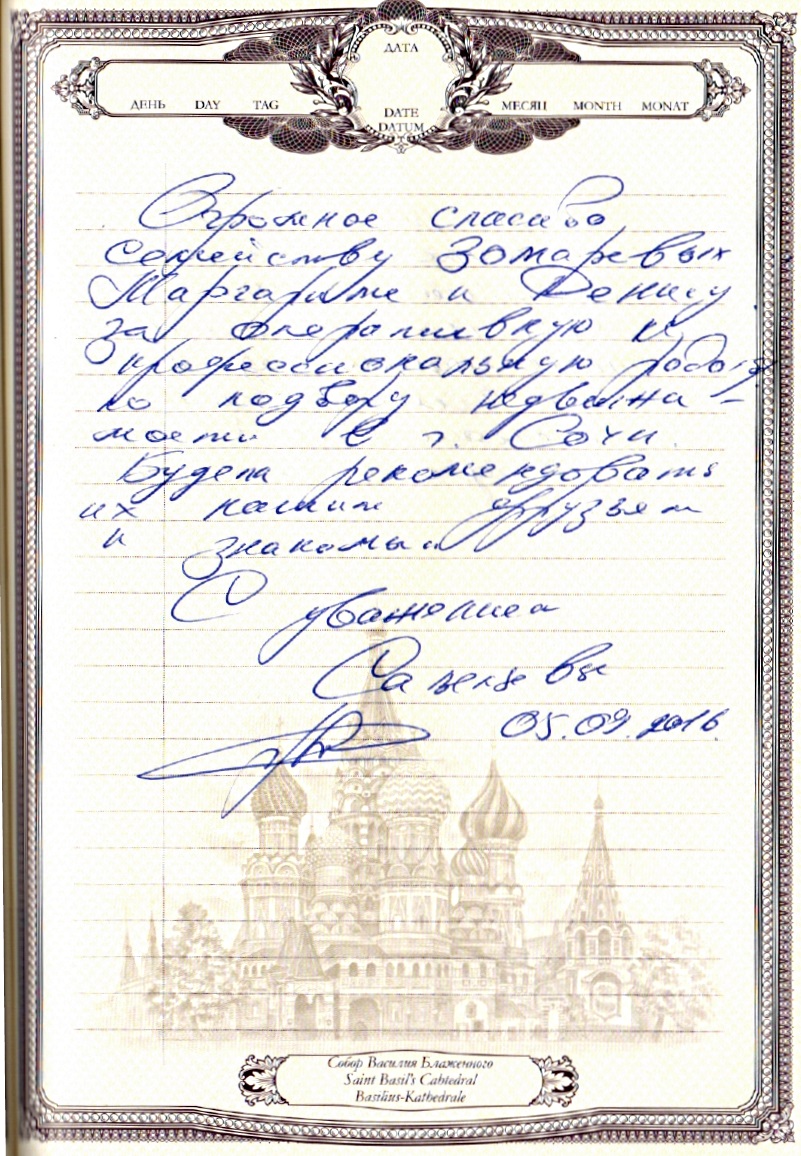 ДАТА
ДЕНЬ DAY TAG
DATE
DATUM
МЕСЯЦ MONTH MONAT
Огромное спасибо
семейству Зомаревых
Маргарите и Денису
за оперативную и
профессиональную работу
по подбору недвижи-
мости в г. Сочи.
Будем рекомендовать
их нашим друзьям
и знакомым
С уважением
05.09.2016.
Собор Василия Блаженного
Saint Basil's Cahtedral
Basilius-Kathedrale